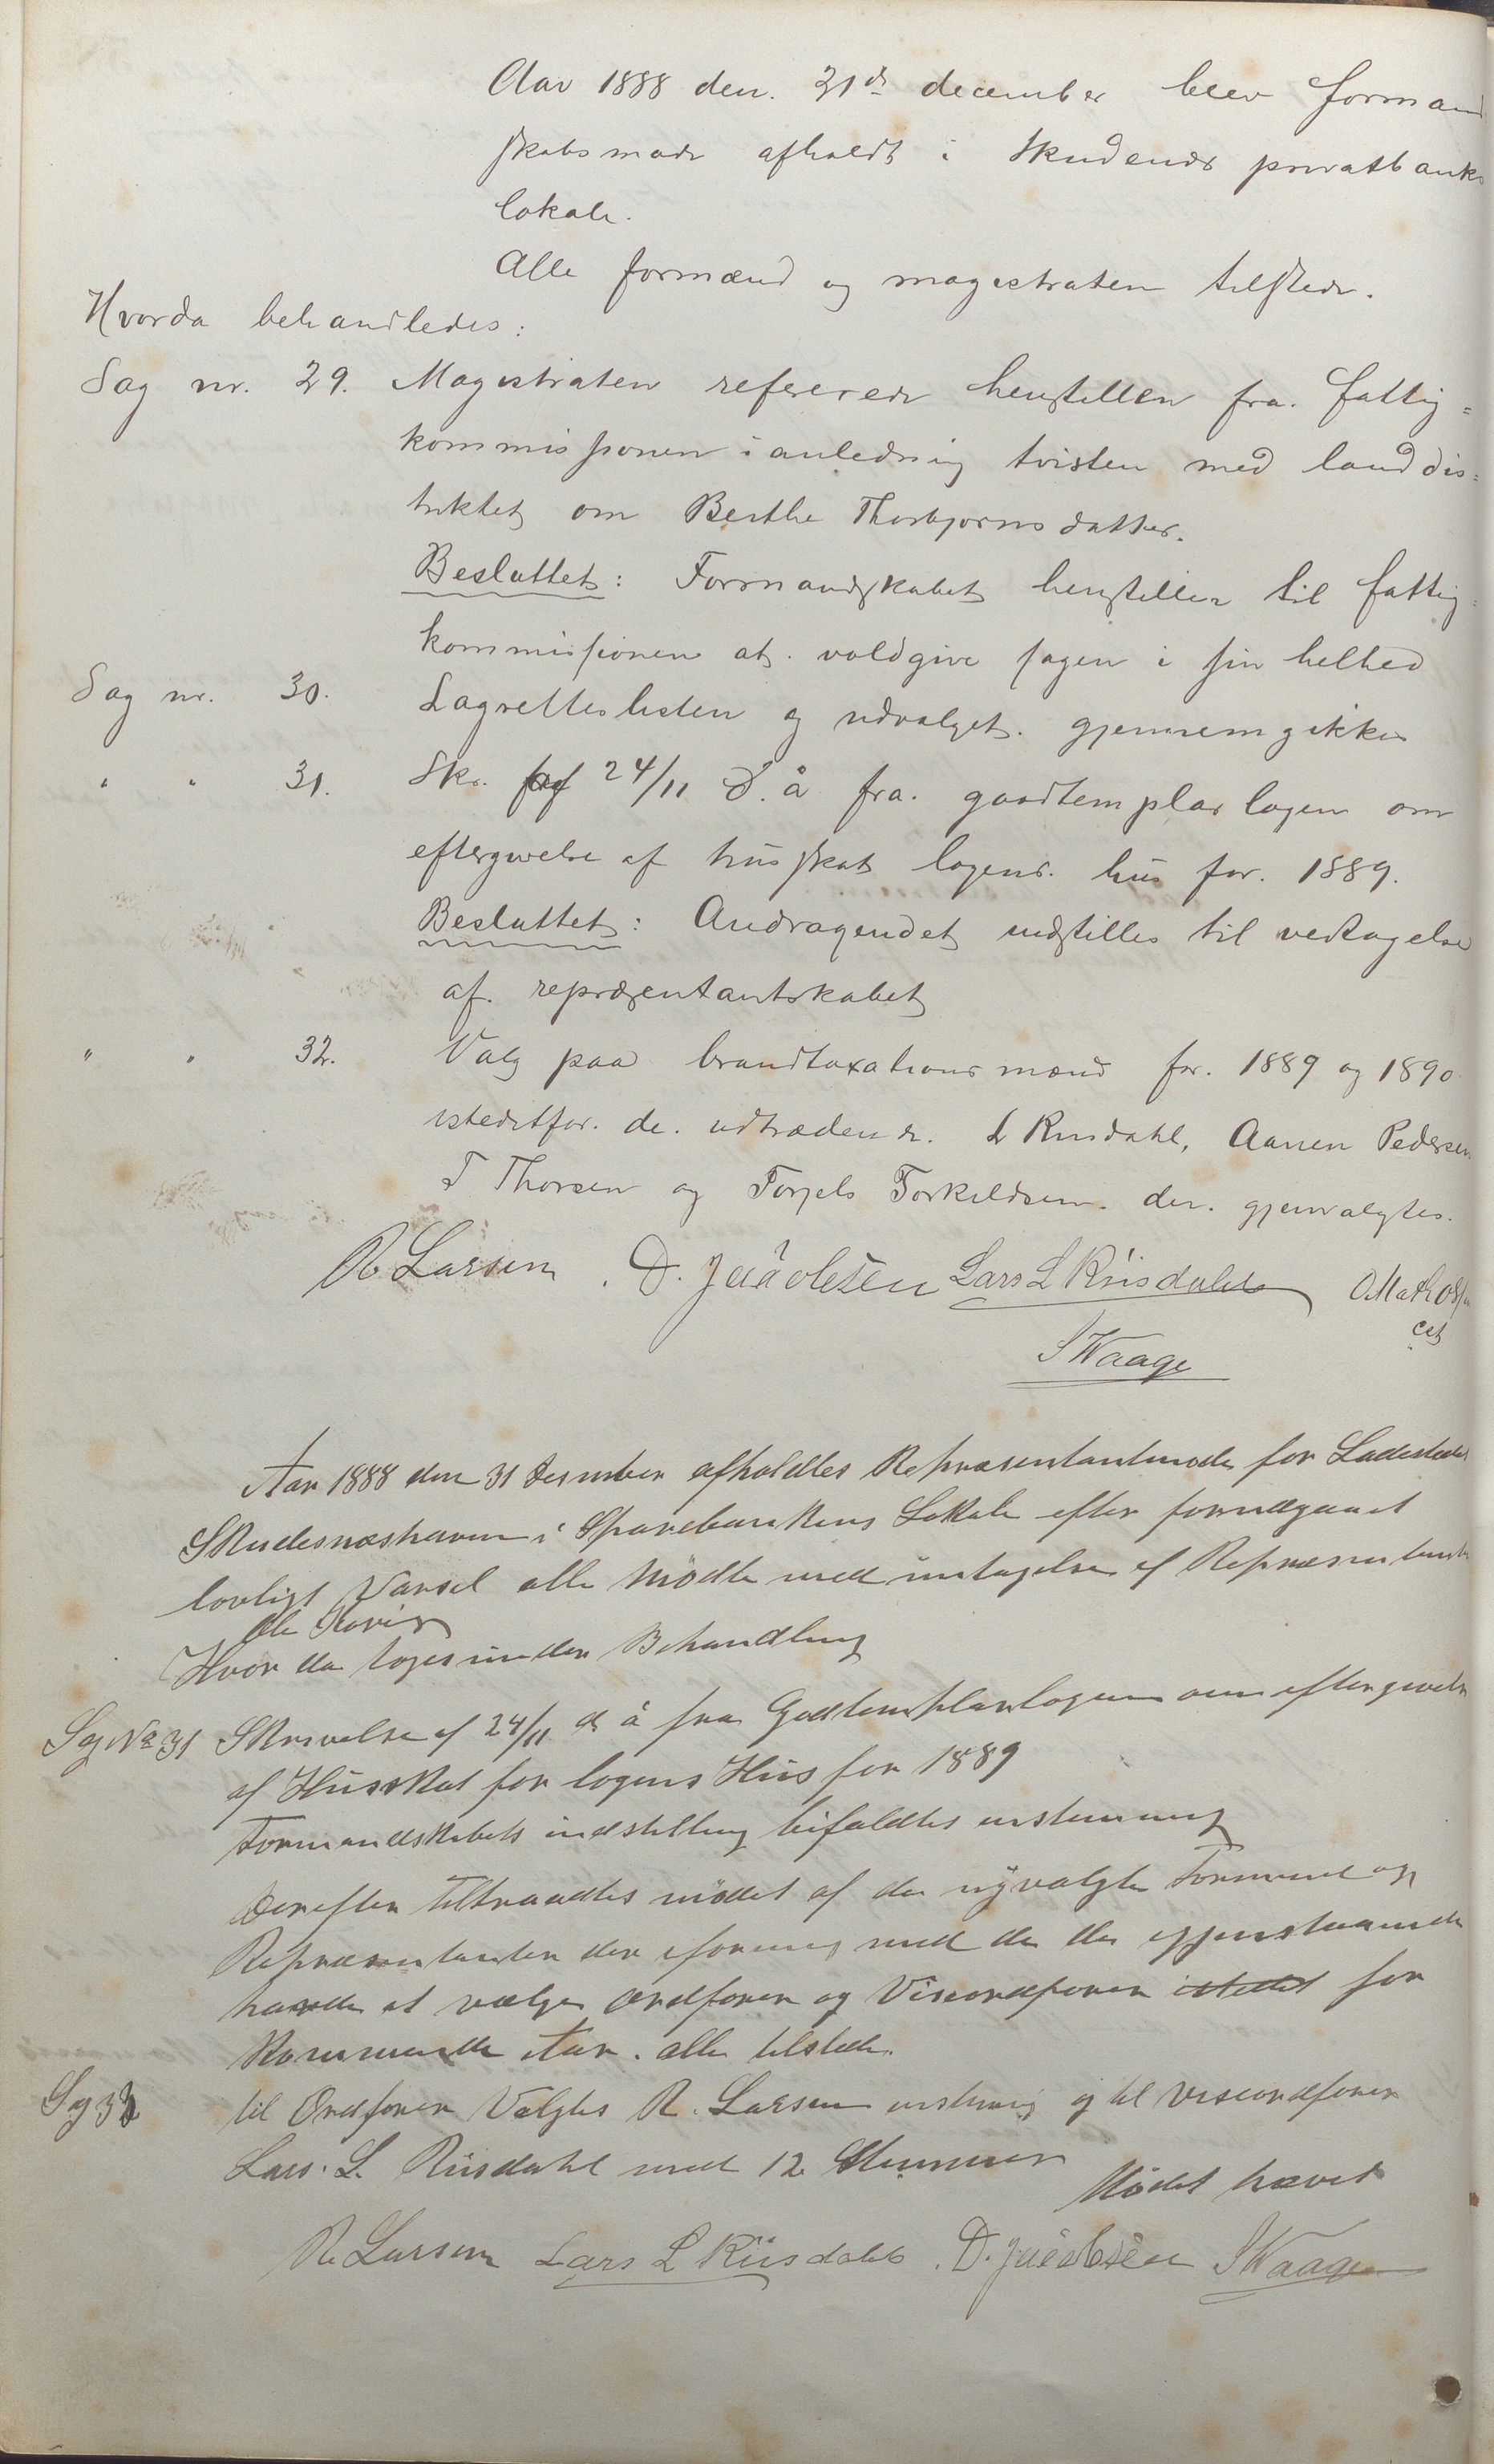 Aar 1888 den. 31de december blev formand
skabsmøde afholdt i Skudenes privatbanks
lokale.
Alle formænd og magistraten tilstede.
Hvorda behandledes:
Sag nr. 29. Magistraten refererede henstillen fra. fattig=
kommissionen i anledning tvisten med landdis=
triktet om Berthe Thorbjørnsdatter.
Besluttet: Formandskabet henstiller til fattig=
kommissionen at. voldgive sagen i sin helhed
Sag nr. 30. Lagretteslisten og udvalget. gjennemgikkes
" " 31. Skr. af 24/11 d. å fra. goodtemplarlogen om
eftergivelse af husskat logens. hus for. 1889.
Besluttet: Andragendet indstilles til vedtagelse
af. repræsentantskabet
" " 32. Valg paa brandtaxationsmænd for. 1889 og 1890
istedetfor. de. udtrædende. L Riisdahl, Aanen Pedersen
T Thorsen og Torjels Torkildsen. der. gjenvalgtes.
R Larsen . D. Jacobsen Lars L Riisdahl O Mathias
S Waage
Aar 1888 den 31 Desember afholdtes Repræsentantmøde for Ladestedet
Skudesnæshavn i Sparebankens Lokale efter forudgaaet
lovligt Varsel alle mødte med untagelse af Repræsentanten
Ole
Hvor da toges under Behandling
Sag No 31 Skrivelse af 24/11 d å fra Godtemplarlogen om eftergivelse
af Husskat for logens Hus for 1889
Formandskabets indstilling bifaldtes enstemmig
Derefter tiltraadtes mødet af de nyvalgte Formænd og
Repræsentanter der iforening med de der gjenstaaende
havde at vælge Ordfører og Viseordfører istedet for
Kommende Aar. alle tilstede.
Sag 33 til Ordfører Valgtes R. Larsen enstemig og til Viseordfører
Lars. L. Riisdahl med 12 Stemmer
Mødet hævet
R. Larsen Lars L Riisdahl . D. Jacobsen S Waage